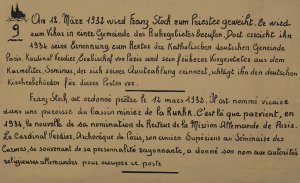 9
Am 12. März 1932 wird Franz Stock zum Priester geweiht. Er wird
zum Vikar in eine Gemeinde des Ruhrgebietes berufen. Dort erreicht ihn
1934 seine Ernennung zum Rektor der Katholischen deutschen Gemeinde
Paris. Kardinal Verdier, Erzbischof von Paris und sein früherer Vorgesetzter aus dem
Karmeliter Seminar, der sich seiner Ausstrahlung erinnert, schlägt ihn den deutschen
Kirchenbehörden für diesen Posten vor.
Franz Stock est ordonné prêtre le 12 mars 1932. Il est nommé vicaire
dans une paroisse du bassin minier de la Ruhr. C'est là que parvient, en
1934, la nouvelle de sa nomination de Recteur de la Mission Allemande de Paris.
Le Cardinal Verdier, Archevêque de Paris, son ancien Supérieur au Séminaire des
Carmes, se souvenant de sa personnalité rayonnante, a donné son nom aux autorités
religieuses allemandes pour occuper ce poste